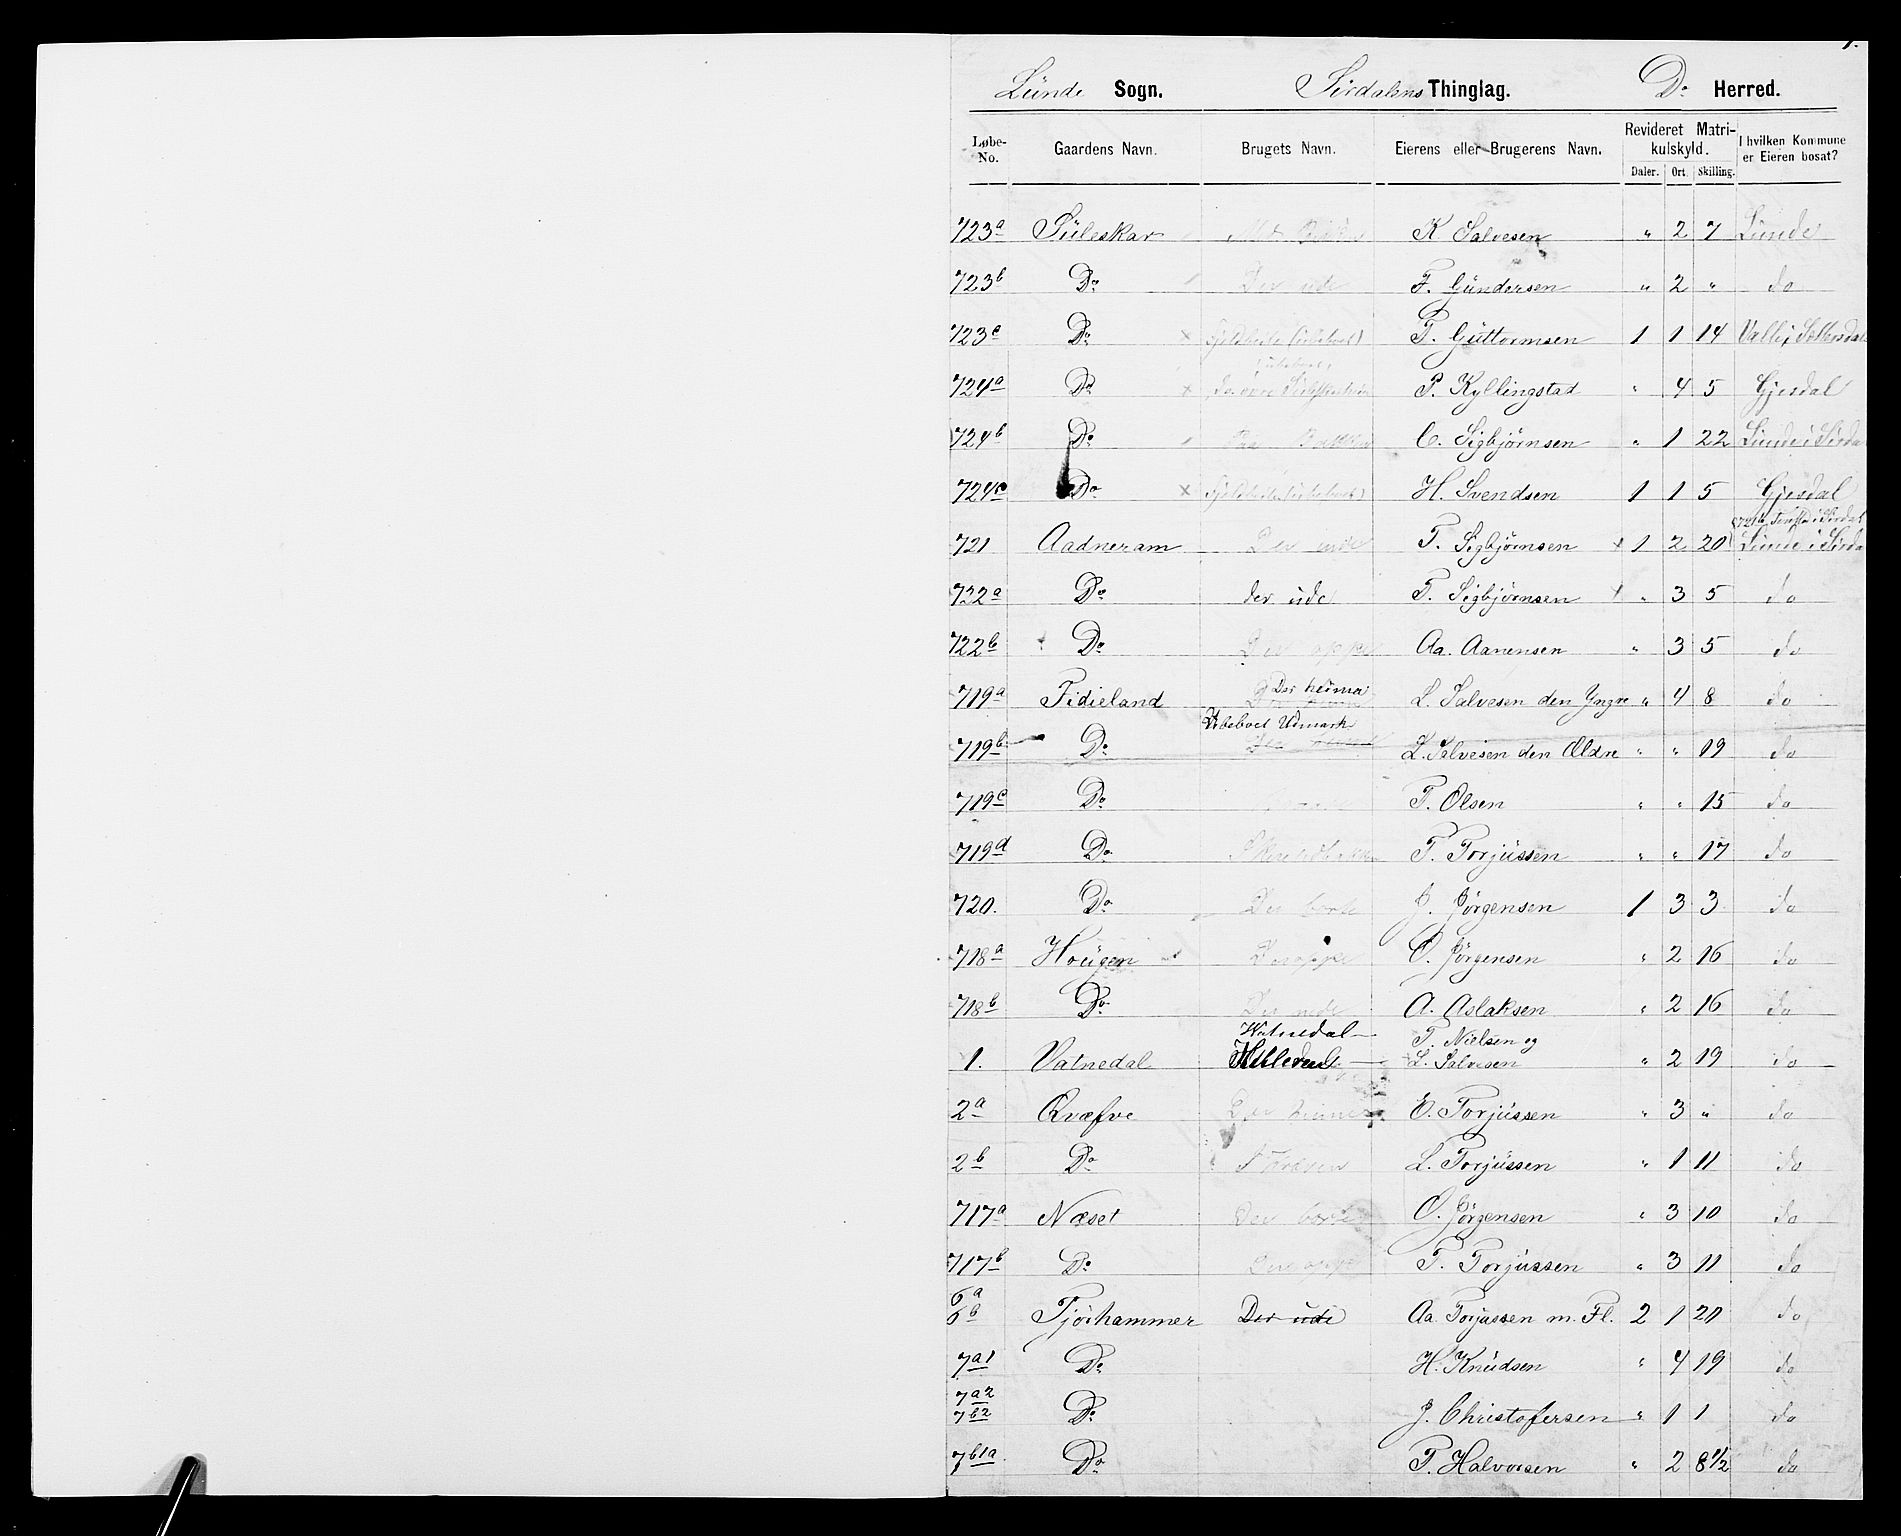 1.
Lünde Sogn. Sirdalens Thinglag. Do Herred.
Løbe-No. Gaardens Navn. Brugets Navn. Eierens eller Brugerens Navn. Revideret Matrikulskyld. Daler. Ort. Skilling. I hvilken Kommune er Eieren bosat?
723a Süleskar K Salvesen " 2 7 Lunde
723b Do Der ude F. Gündersen " 2 " do
723c Do Fjeldheile (ubeboet) T. Güttormsen 1 1 14 Valle i Sættersdal
724a Do P. Kyllingstad " 4 5 Gjesdal
724b Do Paa Bakken C. Sigbjörnsen " 1 22 Lunde i Sirda
724c Do (ubeboet) H. Svendsen 1 1 5 Gjesdal
721 Aadneram Der inde T. Sigbjörnsen x 1 2 20 Lunde i Sirda
722a Do der üde T. Sigbjörnsen " 3 5 do
722b Do Der oppe Aa. Aanensen " 3 5 do
719a Fidjeland Der heima L. Salvesen den Yngre " 4 8 do
719b Do Ubeboet Udmark L. Salvesen den Ældre " " 19 do
719c Do T. Olsen " " 15 do
719d Do T. Torjüssen " " 17 do
720. Do Der borte J. Jörgensen 1 3 3 do
718a Hoügen Der oppe O. Jörgensen " 2 16 do
718b Do Der nede A. Aslaksen " 2 16 do
Vatnedal T. Nielsen og
1. Vatnedal L. Salvesen " 2 19 do
2a Qvæfve E. Torjüssen " 3 " do
2b Do L. Torjüssen " 1 11 do
717a Næset Der borte O. Jörgensen " 3 10 do
717b Do Der oppe T. Torjüssen " 3 11 do
6a
6b Tjörhammer Der üde Aa. Torjussen m. Fl. 2 1 20 do
7a1 Do H. Knüdsen " 4 19 do
7a2
7b2 Do J. Christofersen " 1 1 do
7b1a Do T. Halvorsen " 2 8 1/2 do